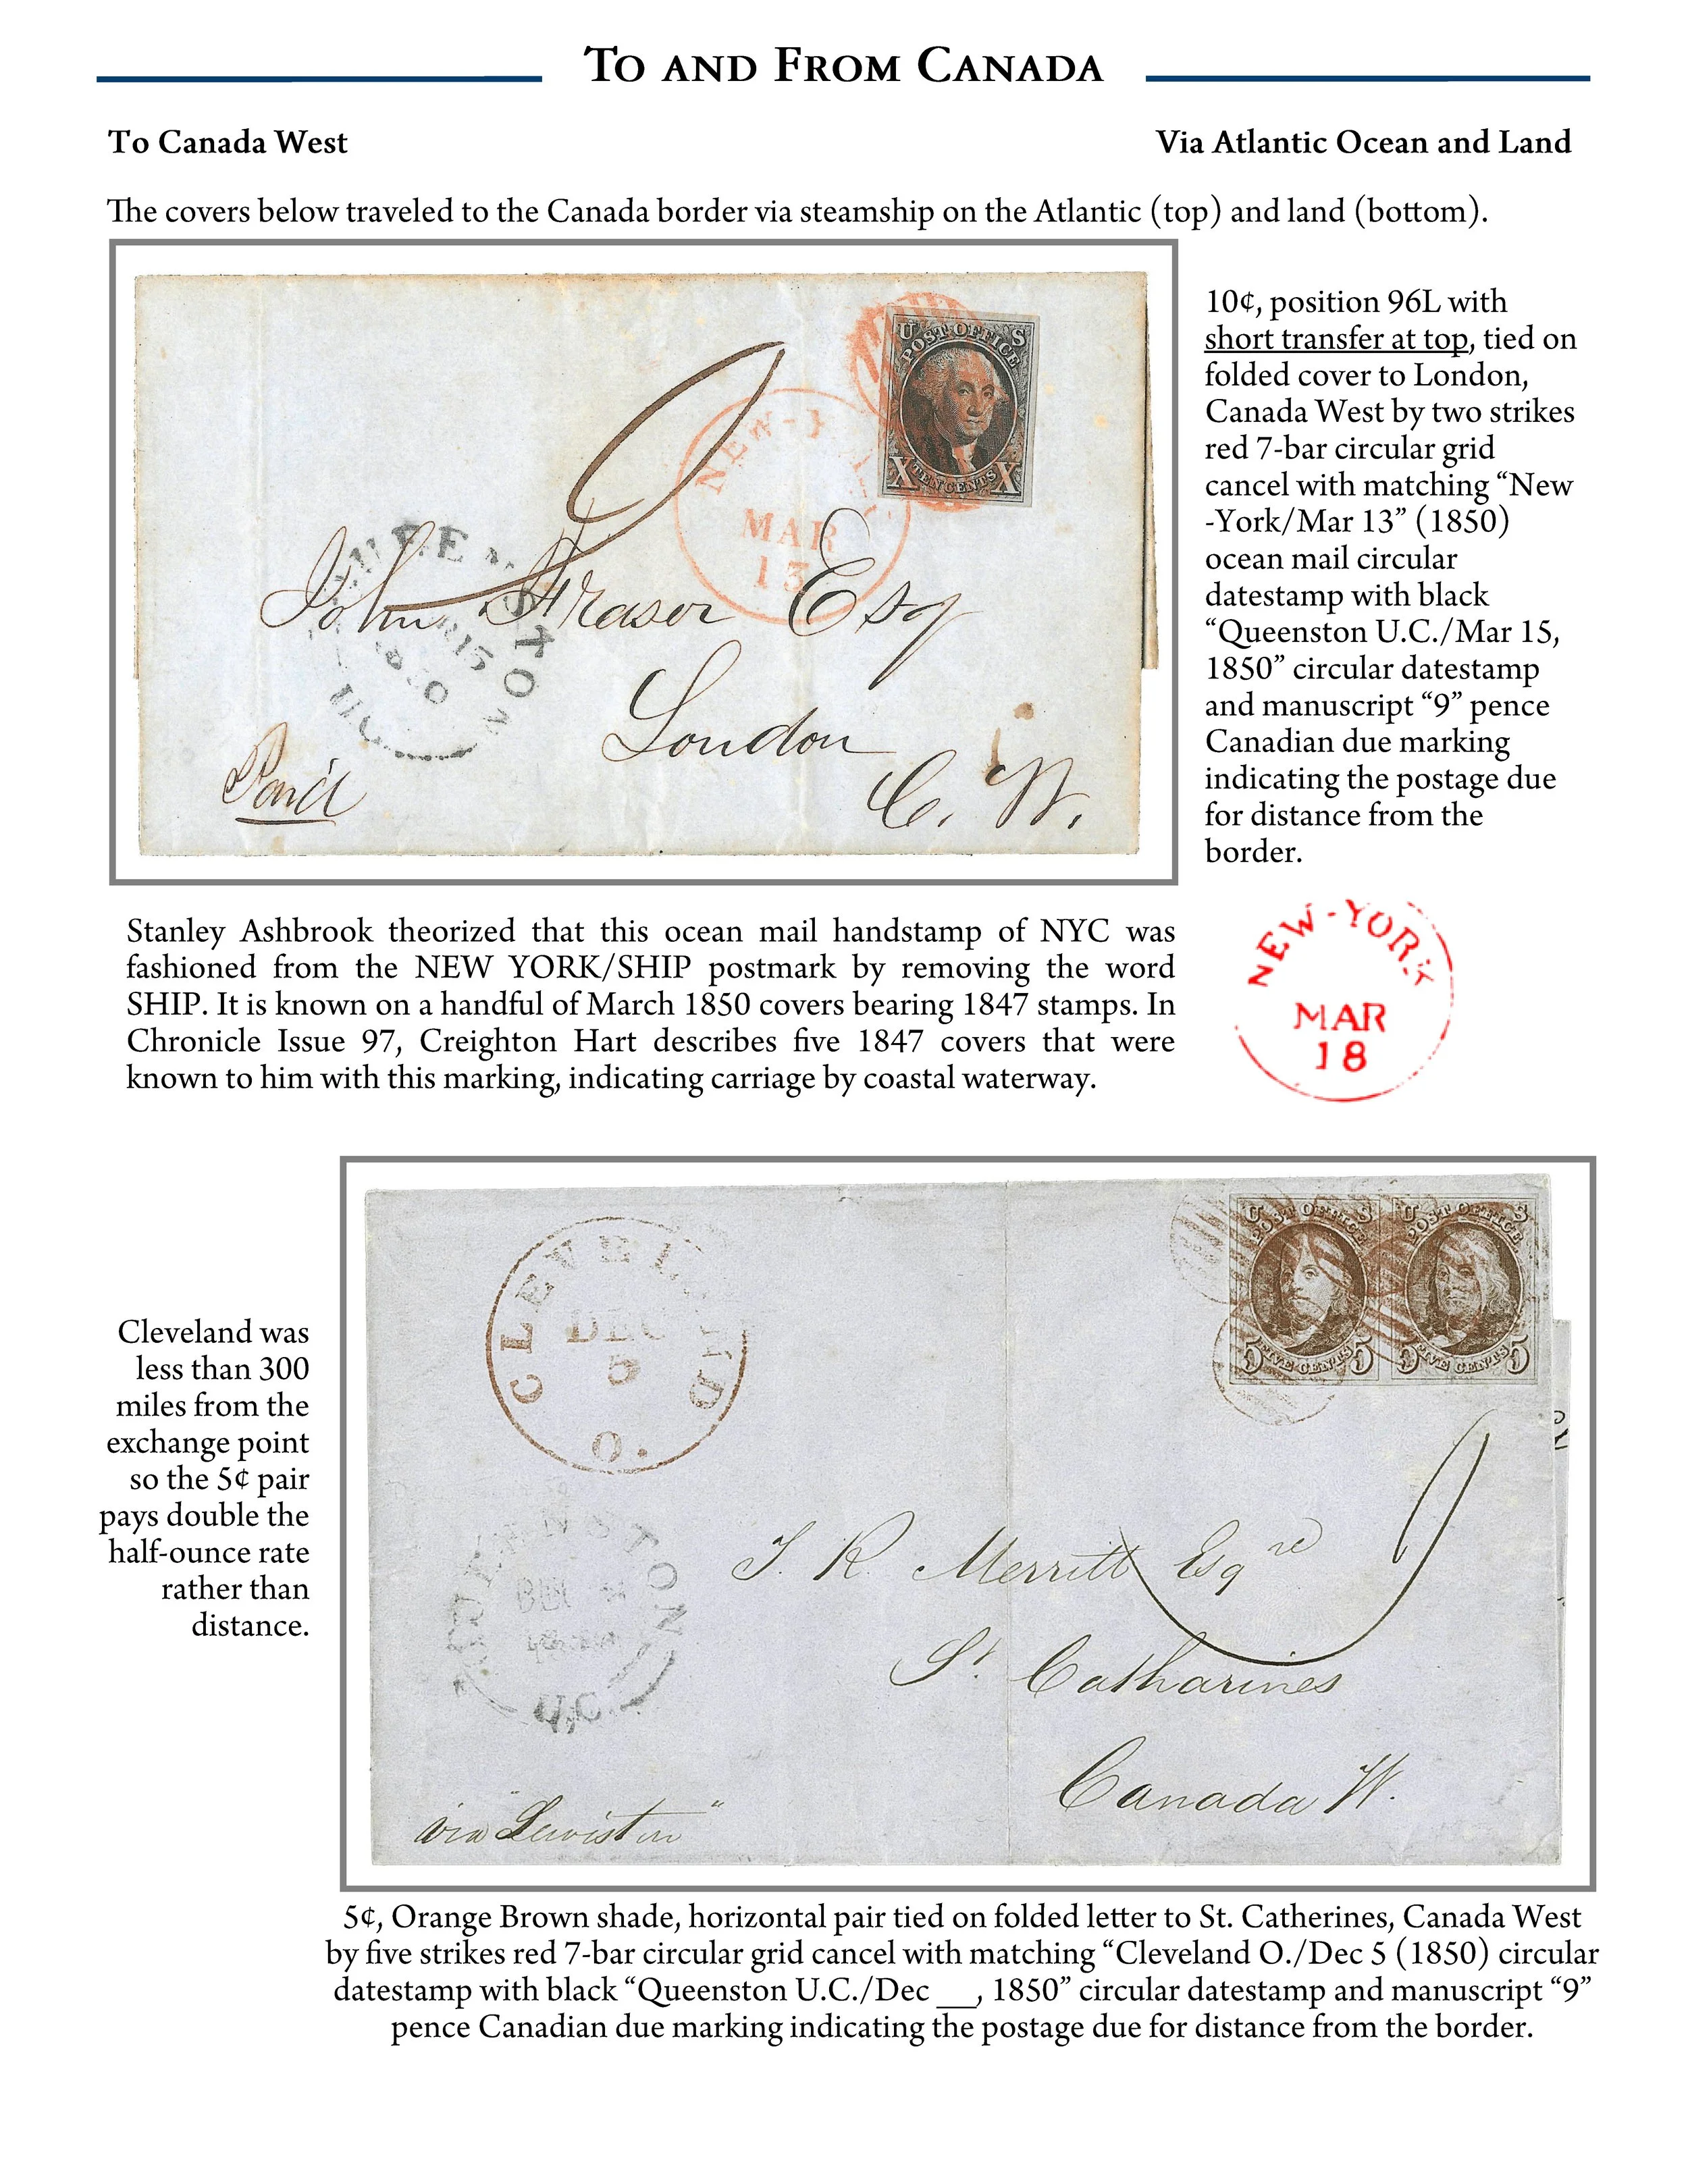 To and From Canada
To Canada West
Via Atlantic Ocean and Land
The covers below traveled to the Canada border via steamship on the Atlantic (top) and land (bottom).
U S
POST OFFICE
X TEN CENTS X
NEW-Y
MAR
13
QUEENSTON
15
UC
John Fraser Esq
London
C. W.
Paid
9
10¢, position 96L with
short transfer at top, tied on
folded cover to London,
Canada West by two strikes
red 7-bar circular grid
cancel with matching “New
-York/Mar 13” (1850)
ocean mail circular
datestamp with black
“Queenston U.C./Mar 15,
1850” circular datestamp
and manuscript “9” pence
Canadian due marking
indicating the postage due
for distance from the
border.
Stanley Ashbrook theorized that this ocean mail handstamp of NYC was
fashioned from the NEW YORK/SHIP postmark by removing the word
SHIP. It is known on a handful of March 1850 covers bearing 1847 stamps. In
Chronicle Issue 97, Creighton Hart describes five 1847 covers that were
known to him with this marking, indicating carriage by coastal waterway.
NEW-YORK
MAR
18
Cleveland was
less than 300
miles from the
exchange point
so the 5¢ pair
pays double the
half-ounce rate
rather than
distance.
CLEVELAND
DEC
5
O.
U S
POST OFFICE
5 FIVE CENTS 5
U S
POST OFFICE
5 FIVE CENTS 5
QUEENSTON
DEC
U.C.
9
T. R. Merritt Esqre
St. Catharines
Canada W.
via "Lewiston"
5¢, Orange Brown shade, horizontal pair tied on folded letter to St. Catherines, Canada West
by five strikes red 7-bar circular grid cancel with matching “Cleveland O./Dec 5 (1850) circular
datestamp with black “Queenston U.C./Dec __, 1850” circular datestamp and manuscript “9”
pence Canadian due marking indicating the postage due for distance from the border.